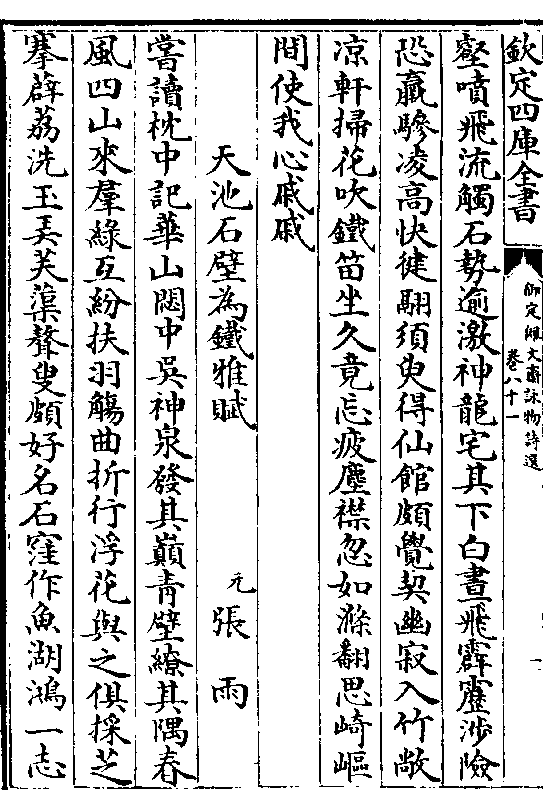 欽定四庫全書
御定佩文齋詠物詩選
卷八十一
壑噴飛流觸石勢逾激神龍宅其下白晝飛霹靂涉險
恐羸驂凌高快健翮須臾得仙館頗覺契幽寂入竹敞
凉軒掃花吹鐵笛坐久竟忘疲塵襟忽如滌翻思崎嶇
間使我心戚戚
天池石壁為鐵雅賦
元張雨
嘗讀枕中記華山閟中吳神泉發其巔青壁繚其隅春
風四山來羣綠互紛扶羽觴曲折行浮花與之俱採芝
搴薜荔洗玉弄芙蕖聱叟頗好名石窪作魚湖鴻一志